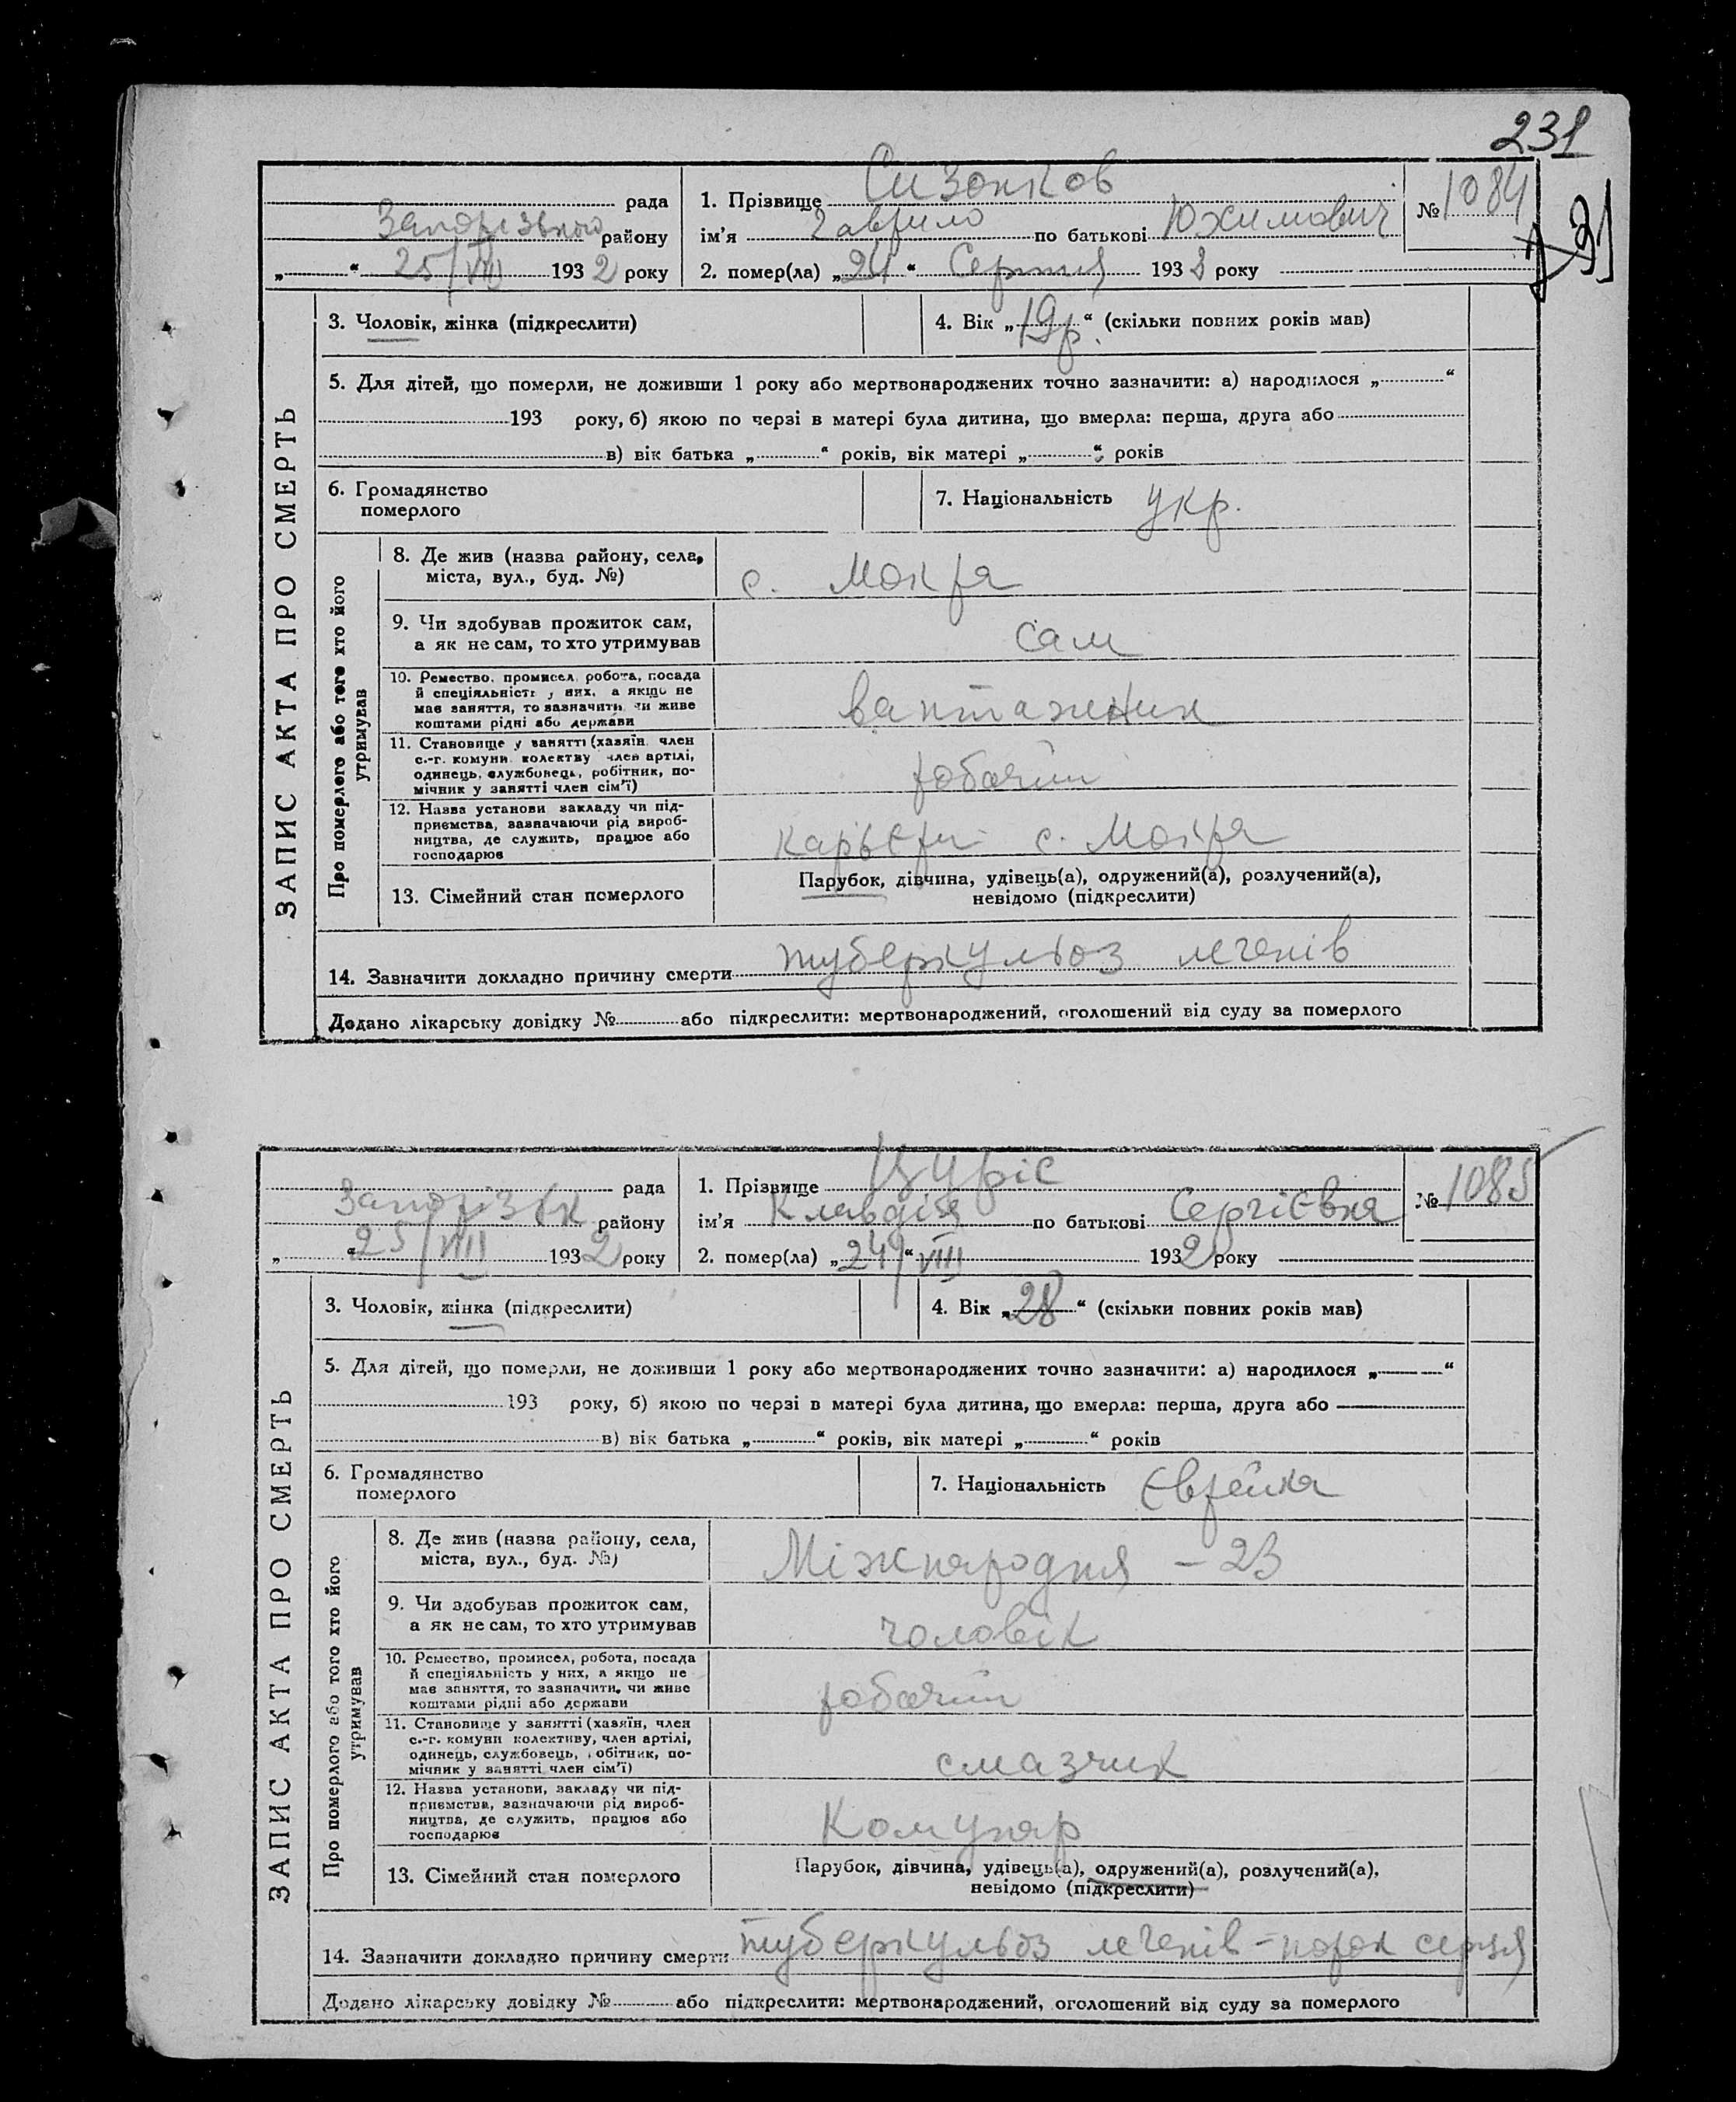 231
ЗАПИС АКТА ПРО СМЕРТЬ
рада
Запорізького району
„ “ 25/VIII 1932 року
1. Прізвище Сизонков
ім’я Гаврило по батькові Юхимович
№ 1084
2. помер(ла) „24“ Серпня 193 року
3. Чоловік, жінка (підкреслити)
4. Вік „19р.“ (скільки повних років мав)
5. Для дітей, що померли, не доживши 1 року або мертвонароджених точно зазначити: а) народилося „ “
193 року, б) якою по черзі в матері була дитина, що вмерла: перша, друга або
в) вік батька „ “ років, вік матері „ “ років
6. Громадянство
померлого
7. Національність укр.
Про померлого або того хто його
утримував
8. Де жив (назва району, села,
міста, вул., буд. №)
с. Мокра
9. Чи здобував прожиток сам,
а як не сам, то хто утримував
сам
10. Ремество, промисел, робота, посада
й спеціяльність у них, а якщо не
має заняття, то зазначити, чи живе
коштами рідні або держави
вантажник
11. Становище у занятті (хазяїн, член
с.-г. комуни, колективу, член артілі,
одинець, службовець, робітник, по-
мічник у занятті член сім’ї)
робочий
12. Назва установи, закладу чи під-
приємства, зазначаючи рід вироб-
ництва, де служить, працює або
господарює
Карьєри с. Мокра
13. Сімейний стан померлого
Парубок, дівчина, удівець(а), одружений(а), розлучений(а),
невідомо (підкреслити)
14. Зазначити докладно причину смерти туберкульоз легенів
Додано лікарську довідку № або підкреслити: мертвонароджений, оголошений від суду за померлого
ЗАПИС АКТА ПРО СМЕРТЬ
рада
Запорізьк району
„ “ 25/VIII 1932 року
1. Прізвище Цуріс
ім’я Клавдія по батькові Сергієвна
№ 1085
2. помер(ла) „24“ VIII 1932 року
3. Чоловік, жінка (підкреслити)
4. Вік „28“ (скільки повних років мав)
5. Для дітей, що померли, не доживши 1 року або мертвонароджених точно зазначити: а) народилося „ “
193 року, б) якою по черзі в матері була дитина, що вмерла: перша, друга або
в) вік батька „ “ років, вік матері „ “ років
6. Громадянство
померлого
7. Національність Єврейка
Про померлого або того хто його
утримував
8. Де жив (назва району, села,
міста, вул., буд. №)
Міжнародня – 23
9. Чи здобував прожиток сам,
а як не сам, то хто утримував
чоловік
10. Ремество, промисел, робота, посада
й спеціяльність у них, а якщо не
має заняття, то зазначити, чи живе
коштами рідні або держави
робочий
11. Становище у занятті (хазяїн, член
с.-г. комуни колективу, член артілі,
одинець, службовець, робітник, по-
мічник у занятті член сім’ї)
смазчик
12. Назва установи, закладу чи під-
приємства, зазначаючи рід вироб-
ництва, де служить, працює або
господарює
Комунар
13. Сімейний стан померлого
Парубок, дівчина, удівець(а), одружений(а), розлучений(а),
невідомо (підкреслити)
14. Зазначити докладно причину смерти туберкульоз легенів – порок серця
Додано лікарську довідку № або підкреслити: мертвонароджений, оголошений від суду за померлого